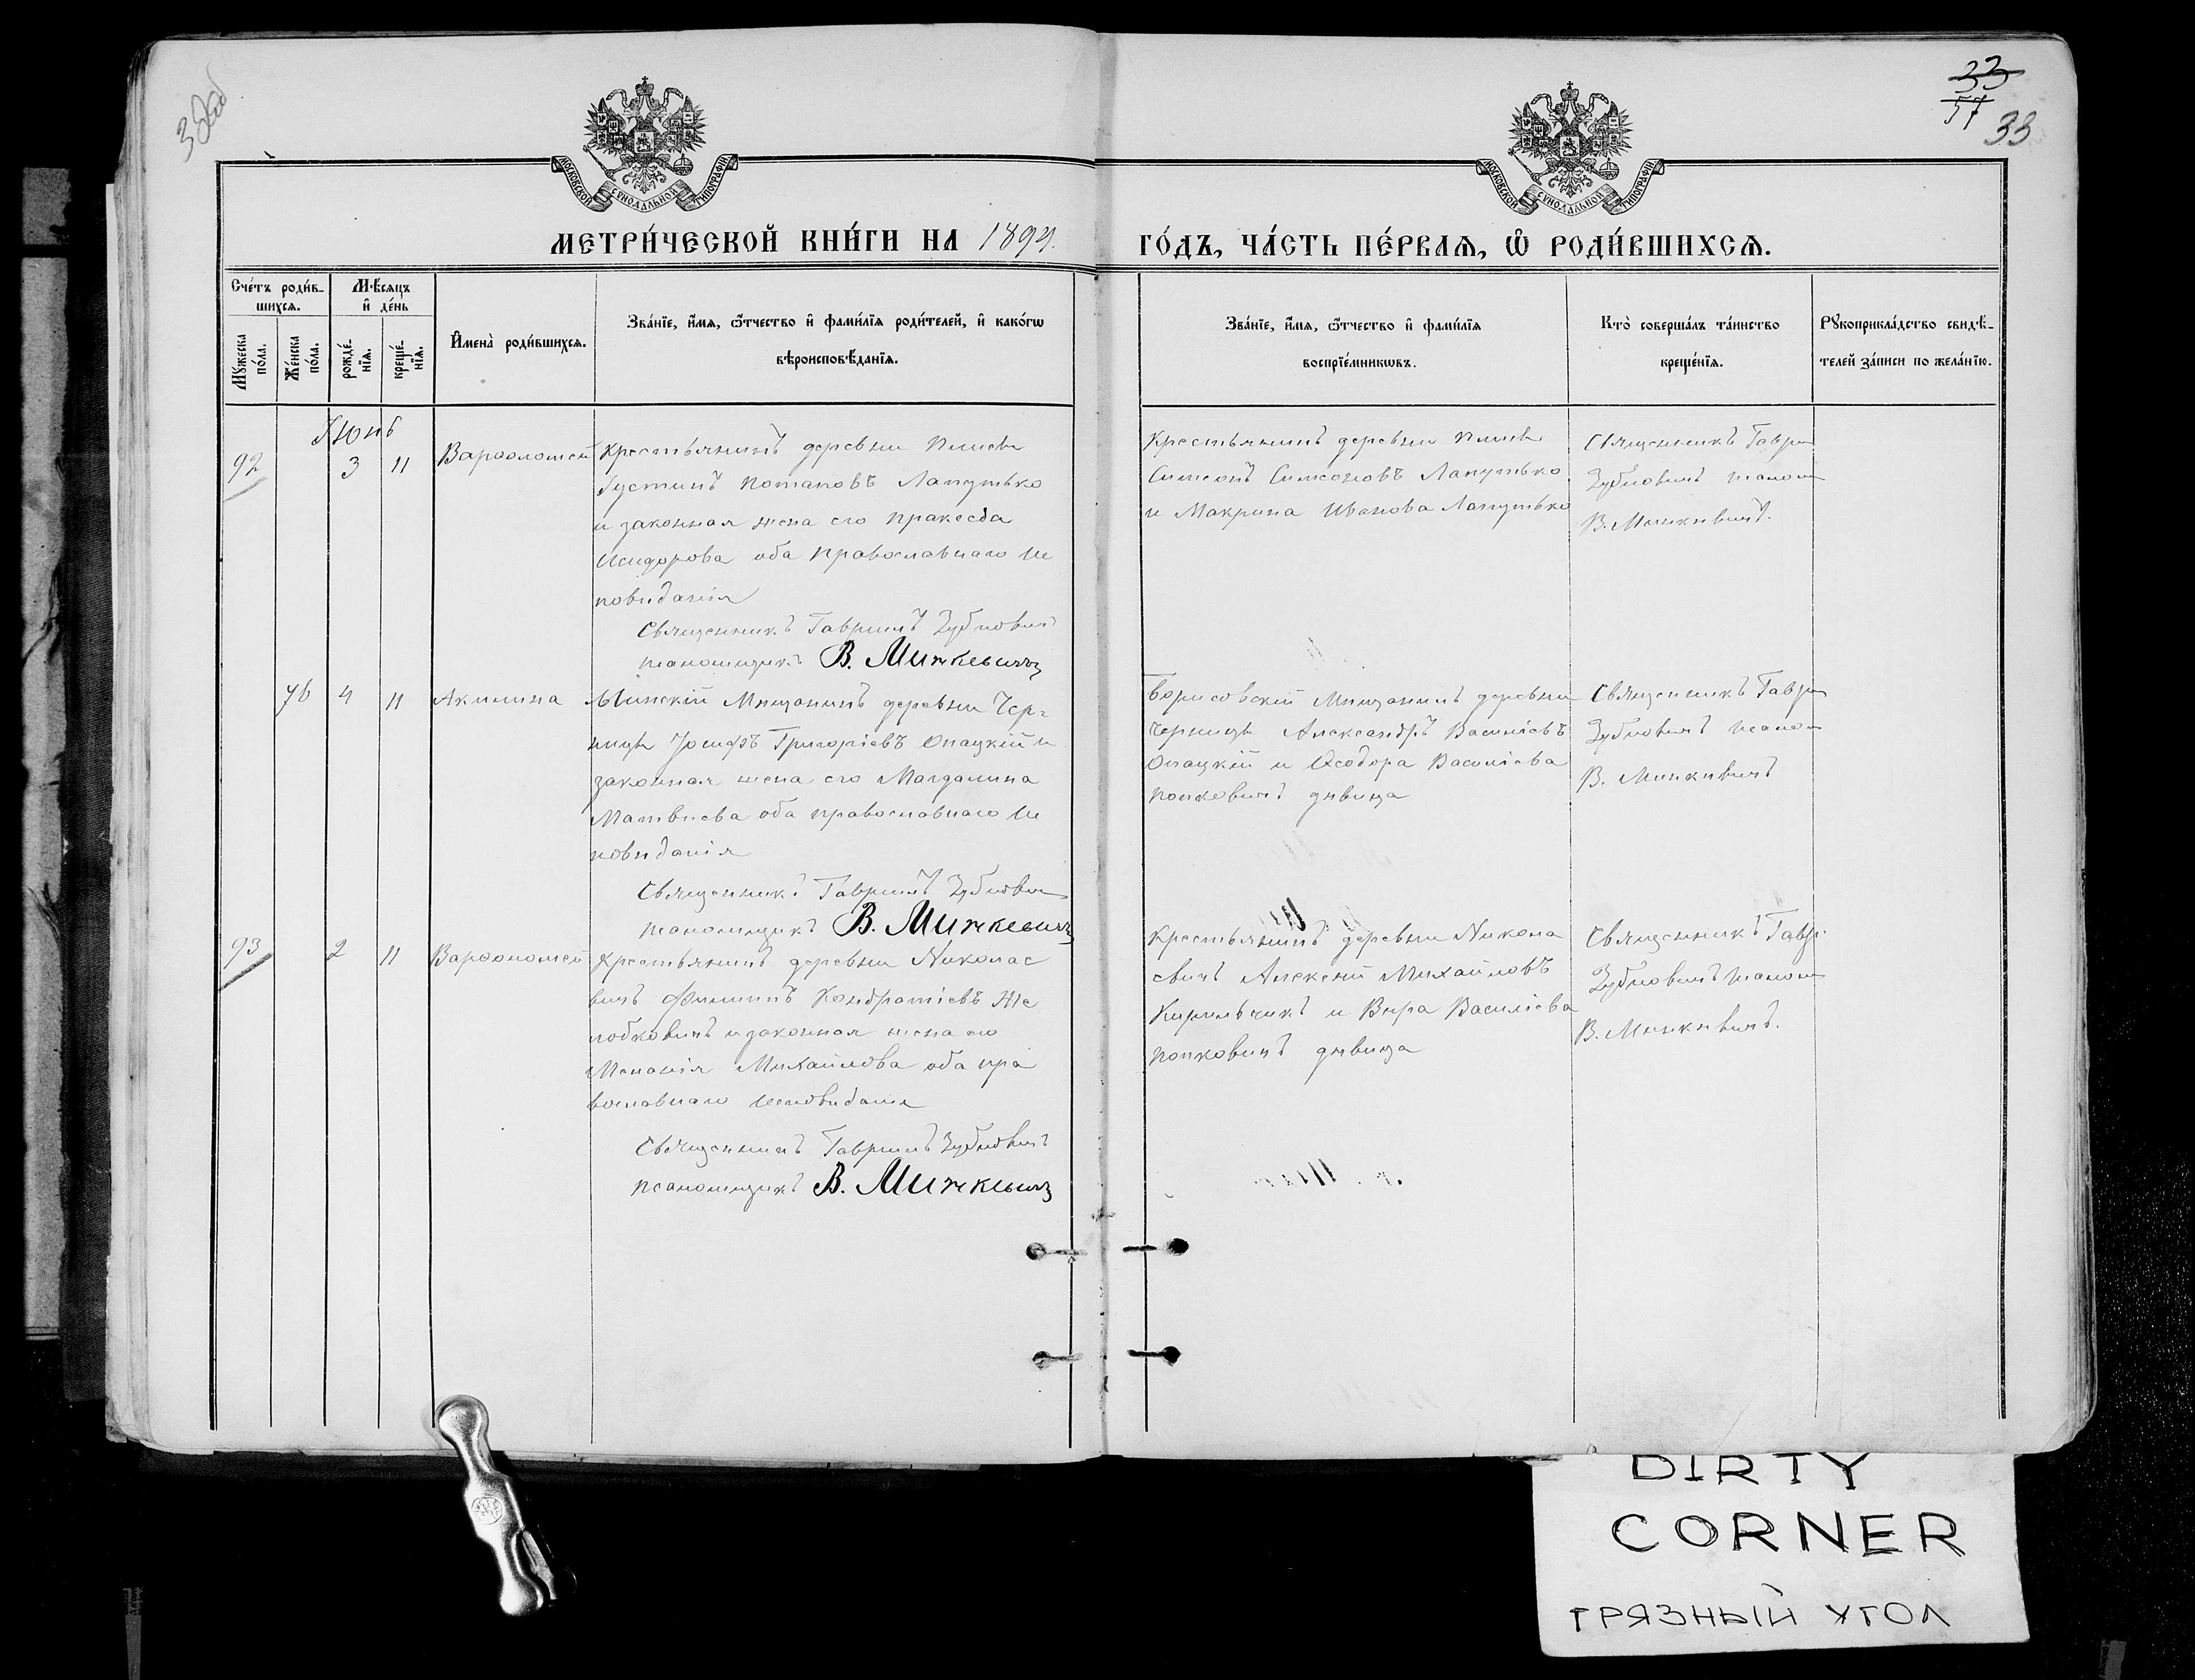 33
57
33
МОСКОВСКОЙ СѴНОДАЛЬНОЙ ТИПОГРАФІИ
МОСКОВСКОЙ СѴНОДАЛЬНОЙ ТИПОГРАФІИ
МЕТРИ́ЧЕСКОЙ КНИ́ГИ НА 1894.
ГО́ДЪ, ЧА́СТЬ ПЕ́РВАѦ, Ѡ҆ РОДИ́ВШИХСѦ.
Сче́тъ роди́в-
шихся.
Мꙋ́жеска по́ла.
Же́нска по́ла.
Мѣ́сяцъ
и҆ де́нь
рожде́-
нїя.
креще́-
нїя.
И҆мена̀ роди́вшихся.
Зва́нїе, и҆́мя, ѻ҆́тчество и҆ фами́лїя роди́телей, и҆ како́гѡ
вѣроисповѣ́данїя.
Зва́нїе, и҆́мя, ѻ҆́тчество и҆ фами́лїя
воспрїе́мникѡвъ.
Кто̀ соверша́лъ та́инство
креще́нїя.
Рꙋкоприкла́дство свидѣ́-
телей за́писи по жела́нїю.
Іюнь
92
3
11
Варѳоломей
Крестьянинъ деревни
Іустинъ Потаповъ Лапутько
и законная жена его Пракседа
Исидорова оба православнаго ис
повѣданія
Священникъ Гавриилъ Зубковичъ
псаломщикъ В. Мичкевичъ
Крестьянинъ деревни
Симеонъ Симеоновъ Лапутько
и Макрина Иванова Лапутько
Священникъ Гаври
Зубковичъ псалом
В. Мичкевичъ.
76
4
11
Акилина
Минскій Мѣщанинъ деревни Чер-
ницы Іосифъ Григоріевъ Опацкій и
законная жена его Магдалина
Матвѣева оба православнаго ис
повѣданія
Священникъ Гавриилъ Зубкович
псаломщикъ В. Мичкевичъ
Борисовскій Мѣщанинъ деревни
Черницы Александръ Василіевъ
Опацкій и Ѳеодора Василіева
Попковичъ дѣвица
Священникъ Гаври
Зубковичъ псало
В. Мичкевичъ
93
2
11
Варѳоломей
Крестьянинъ деревни Николае
вичъ Филиппъ Кондратіевъ Же
лобковичъ и законная жена его
Меланія Михайлова оба пра
вославнаго исповѣданія
Священникъ Гавриилъ Зубковичъ
псаломщикъ В. Мичкевичъ
Крестьянинъ деревни Никола
евичъ Алексѣй Михайловъ
Кирильчикъ и Вѣра Василіева
Попковичъ дѣвица
Священникъ Гавр
Зубковичъ псалом
В. Мичкевичъ.
DIRTY
CORNER
ГРЯЗНЫЙ УГОЛ